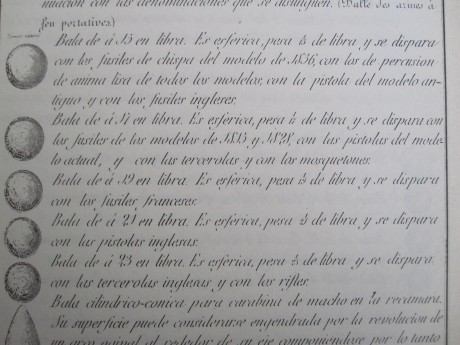 nuacion con las denominaciones que se distinguen. (Balle des armes á
feu portatives)
Bala de á 15 en libra. Es esférica, pesa 1/15 de libra y se dispara
con los fusiles de chispa del modelo de 1836, con los de percusion
de anima lisa de todos los modelos, con la pistola del modelo an-
tiguo y con los fusiles ingleses.
Bala de á 17 en libra. Es esférica, pesa 1/17 de libra y se dispara con
los fusiles de los modelos de 1815 y 1828, con las pistolas del mode-
lo actual, y con las tercerolas y con los mosquetones.
Bala de á 19 en libra. Es esférica, pesa 1/19 de libra y se dispara
con los fusiles franceses.
Bala de á 21 en libra. Es esférica, pesa 1/21 de libra y se dispara
con las pistolas inglesas.
Bala de á 23 en libra. Es esférica, pesa 1/23 de libra y se dispara
con las tercerolas inglesas y con los rifles.
Bala cilindrico-conica para carabina de macho en la recamara.
Su superficie puede considerarse engendrada por la revolucion de
un arco al rededor de su eje componiendose por lo tanto